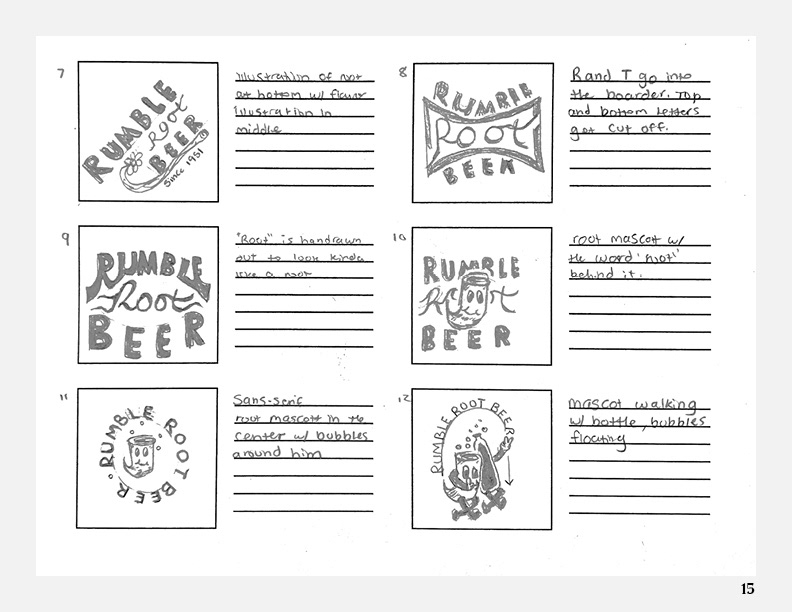 7
RUMBLE
Root
BEER
Since 1951
Illustration of root
at bottom w/ flower
Illustration in
middle
8
RUMBLE
Root
BEER
R and T go into
the boarder. Top
and bottom letters
get cut off.
9
RUMBLE
Root
BEER
"Root" is handrawn
out to look kinda
like a root
10
RUMBLE
Root
BEER
root mascot w/
the word 'root'
behind it.
11
RUMBLE ROOT BEER.
Sans-serif
root mascott in the
center w/ bubbles
around him
12
RUMBLE ROOT BEER
mascot walking
w/ bottle, bubbles
floating
15